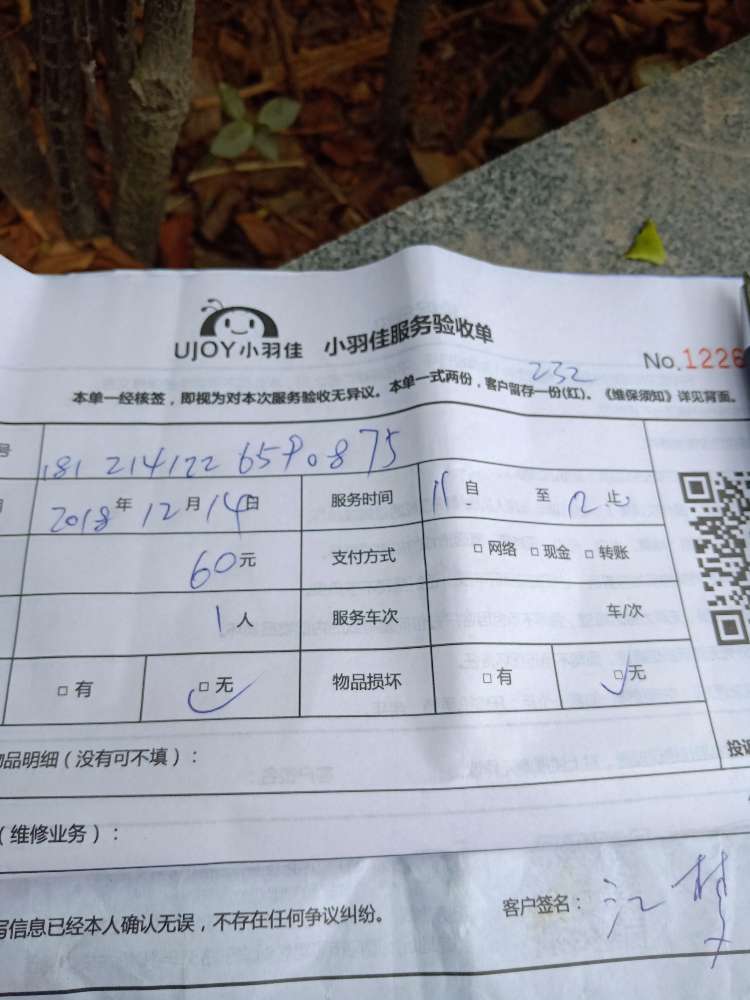 UJOY小羽佳 小羽佳服务验收单
No.1226
232
本单一经核签，即视为对本次服务验收无异议。本单一式两份，客户留存一份(红)。《维保须知》详见背面。
号 181 214122 6590875
2018年12月14日 服务时间 11自 至12止
60元 支付方式 □网络 □现金 □转账
1人 服务车次 车/次
□有 □无 物品损坏 □有 □无
物品明细（没有可不填）： 投诉
（维修业务）：
写信息已经本人确认无误，不存在任何争议纠纷。 客户签名：江梦